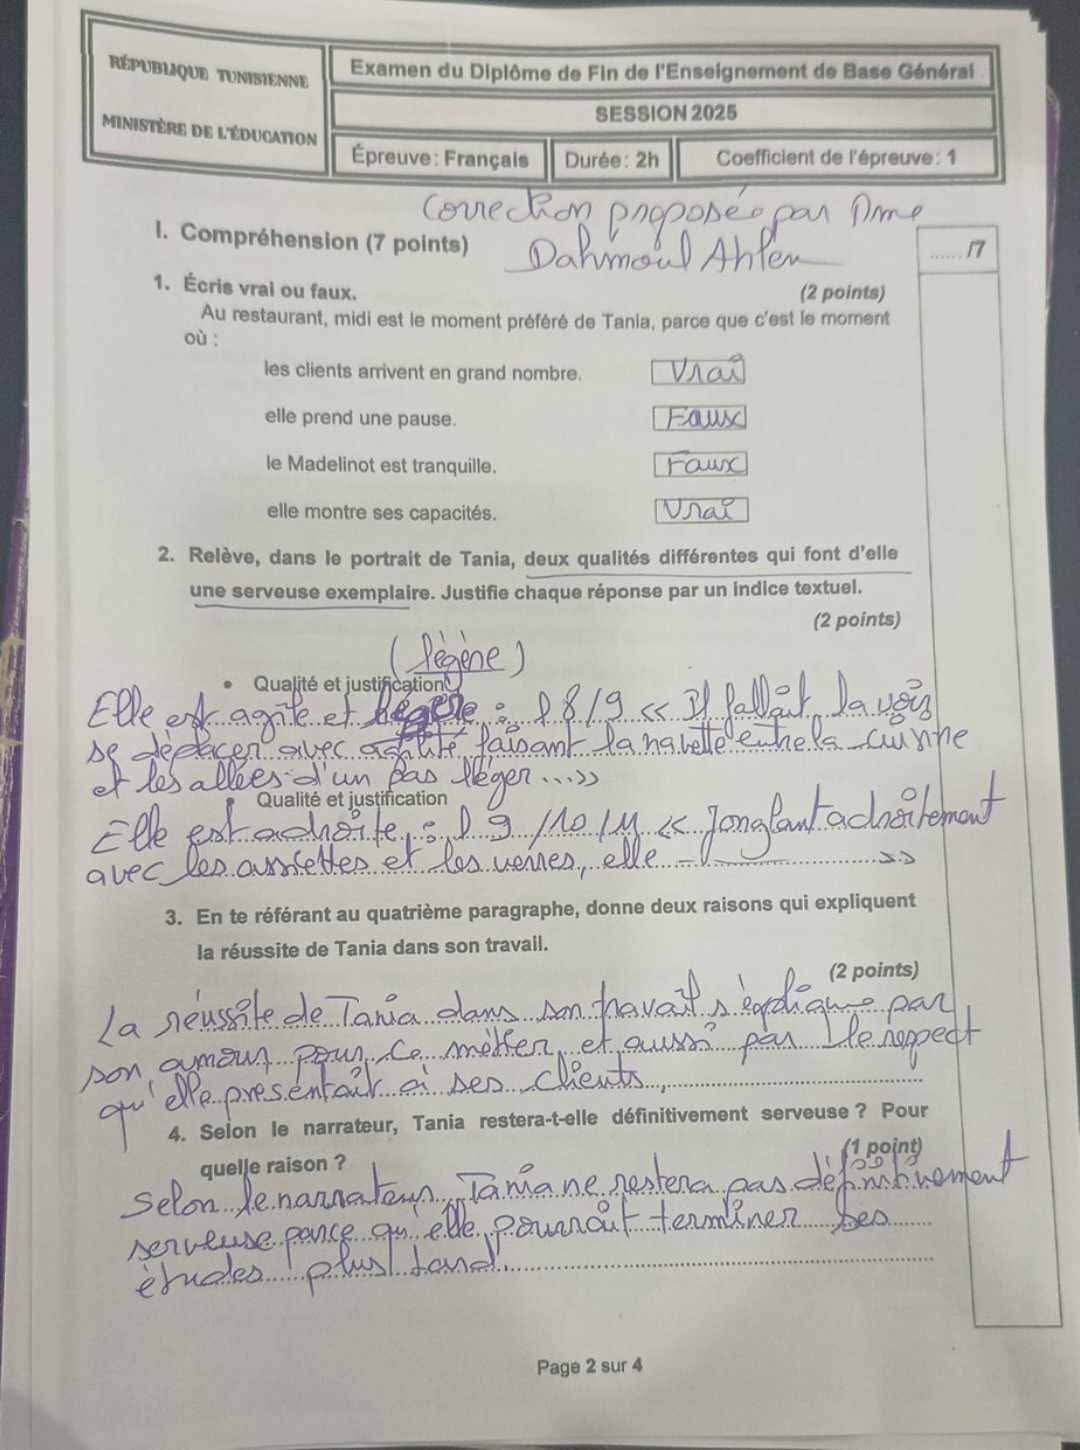 RÉPUBLIQUE TUNISIENNE
MINISTÈRE DE L'ÉDUCATION
Examen du Diplôme de Fin de l'Enseignement de Base Général
SESSION 2025
Épreuve : Français
Durée : 2h
Coefficient de l'épreuve : 1
Correction proposée par Mme
Dahmoul Ahlem
I. Compréhension (7 points)
....../7
1. Écris vrai ou faux.
(2 points)
Au restaurant, midi est le moment préféré de Tania, parce que c'est le moment
où :
les clients arrivent en grand nombre.
Vrai
elle prend une pause.
Faux
le Madelinot est tranquille.
Faux
elle montre ses capacités.
Vrai
2. Relève, dans le portrait de Tania, deux qualités différentes qui font d'elle
une serveuse exemplaire. Justifie chaque réponse par un indice textuel.
(2 points)
(légère)
• Qualité et justification
Elle est agile et légère : l 8/9 << Il fallait la voir
se déplacer avec agilité, faisant la navette entre la cuisine
et les allées d'un pas léger ...>>
• Qualité et justification
Elle est adroite : l 9/10/11 << Jonglant adroitement
avec les assiettes et les verres, elle ... >>
3. En te référant au quatrième paragraphe, donne deux raisons qui expliquent
la réussite de Tania dans son travail.
(2 points)
La réussite de Tania dans son travail s'explique par
son amour pour ce métier et aussi par le respect
qu'elle présentait à ses clients.
4. Selon le narrateur, Tania restera-t-elle définitivement serveuse ? Pour
quelle raison ?
(1 point)
Selon le narrateur, Tania ne restera pas définitivement
serveuse parce qu'elle pourrait terminer ses
études plus tard.
Page 2 sur 4